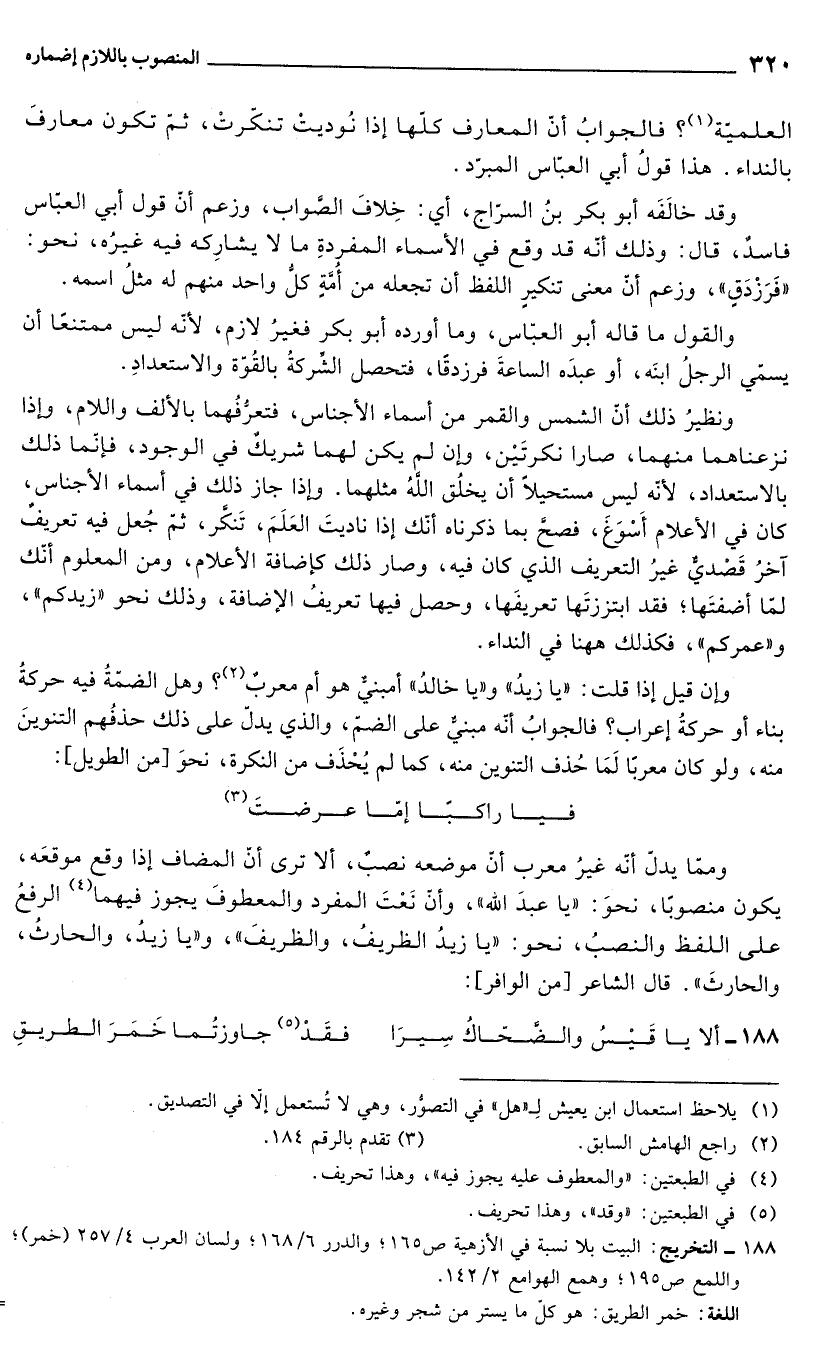 ٣٢٠ المنصوب باللازم إضماره
العلميّة(١)؟ فالجوابُ أنّ المعارف كلّها إذا نُوديتْ تنكّرتْ، ثمّ تكون معارفَ
بالنداء. هذا قولُ أبي العبّاس المبرّد.
وقد خالَفَه أبو بكر بنُ السراج، أي: خِلافَ الصَّواب، وزعم أنّ قول أبي العبّاس
فاسدٌ، قال: وذلك أنّه قد وقع في الأسماء المفردةِ ما لا يشاركه فيه غيرُه، نحو:
«فَرَزْدَقٍ»، وزعم أنّ معنى تنكيرِ اللفظ أن تجعله من أُمَّةٍ كلُّ واحد منهم له مثلُ اسمه.
والقول ما قاله أبو العبّاس، وما أورده أبو بكر فغيرُ لازم، لأنّه ليس ممتنعًا أن
يسمّي الرجلُ ابنَه، أو عبدَه الساعةَ فرزدقًا، فتحصل الشِّركةُ بالقُوّة والاستعدادِ.
ونظيرُ ذلك أنّ الشمس والقمر من أسماء الأجناس، فتعرُّفُهما بالألف واللام، وإذا
نزعناهما منهما، صارا نكرتَيْن، وإن لم يكن لهما شريكٌ في الوجود، فإنّما ذلك
بالاستعداد، لأنّه ليس مستحيلاً أن يخلُق اللَّهُ مثلهما. وإذا جاز ذلك في أسماء الأجناس،
كان في الأعلام أَسْوَغَ، فصحَّ بما ذكرناه أنّك إذا ناديتَ العَلَمَ، تَنَكَّر، ثمّ جُعل فيه تعريفٌ
آخرُ قَصْديٌّ غيرُ التعريف الذي كان فيه، وصار ذلك كإضافة الأعلام، ومن المعلوم أنّك
لمّا أضفتَها؛ فقد ابتززتَها تعريفَها، وحصل فيها تعريفُ الإضافة، وذلك نحو «زيدكم»،
و«عمركم»، فكذلك ههنا في النداء.
وإن قيل إذا قلت: «يا زيدُ» و«يا خالدُ» أمبنيٌّ هو أم معربٌ(٢)؟ وهل الضمّةُ فيه حركةُ
بناء أو حركةُ إعراب؟ فالجوابُ أنّه مبنيٌّ على الضمّ، والذي يدلّ على ذلك حذفُهم التنوينَ
منه، ولو كان معربًا لَمَا حُذف التنوين منه، كما لم يُحْذَف من النكرة، نحوَ [من الطويل]:
فـيـا راكـبًـا إمّـا عـرضـتَ(٣)
وممّا يدلّ أنّه غيرُ معرب أنّ موضعه نصبٌ، ألا ترى أنّ المضاف إذا وقع موقعَه،
يكون منصوبًا، نحوَ: «يا عبدَ الله»، وأنّ نَعْتَ المفرد والمعطوفَ يجوز فيهما(٤) الرفعُ
على اللفظ والنصبُ، نحو: «يا زيدُ الظريفُ، والظريفَ»، و«يا زيدُ، والحارثُ،
والحارثَ». قال الشاعر [من الوافر]:
١٨٨ - ألا يـا قَيْسُ والضَّحّاكُ سِيرَا فقَدْ(٥) جاوزتُما خَمَرَ الطريقِ
(١) يلاحظ استعمال ابن يعيش لِـ«هل» في التصوُّر، وهي لا تُستعمل إلّا في التصديق.
(٢) راجع الهامش السابق. (٣) تقدم بالرقم ١٨٤.
(٤) في الطبعتين: «والمعطوف عليه يجوز فيه»، وهذا تحريف.
(٥) في الطبعتين: «وقد»، وهذا تحريف.
١٨٨ - التخريج: البيت بلا نسبة في الأزهية ص١٦٥؛ والدرر ٦/ ١٦٨؛ ولسان العرب ٤/ ٢٥٧ (خمر)؛
واللمع ص١٩٥؛ وهمع الهوامع ٢/ ١٤٢.
اللغة: خمر الطريق: هو كلّ ما يستر من شجر وغيره.
=